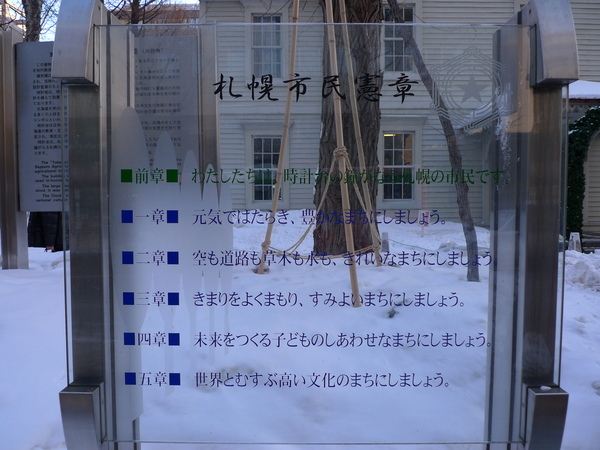 札幌市民憲章
■前章■ わたしたちは、時計台の鐘がなる札幌の市民です。
■一章■ 元気ではたらき、豊かなまちにしましょう。
■二章■ 空も道路も草木も水も、きれいなまちにしましょう。
■三章■ きまりをよくまもり、すみよいまちにしましょう。
■四章■ 未来をつくる子どものしあわせなまちにしましょう。
■五章■ 世界とむすぶ高い文化のまちにしましょう。